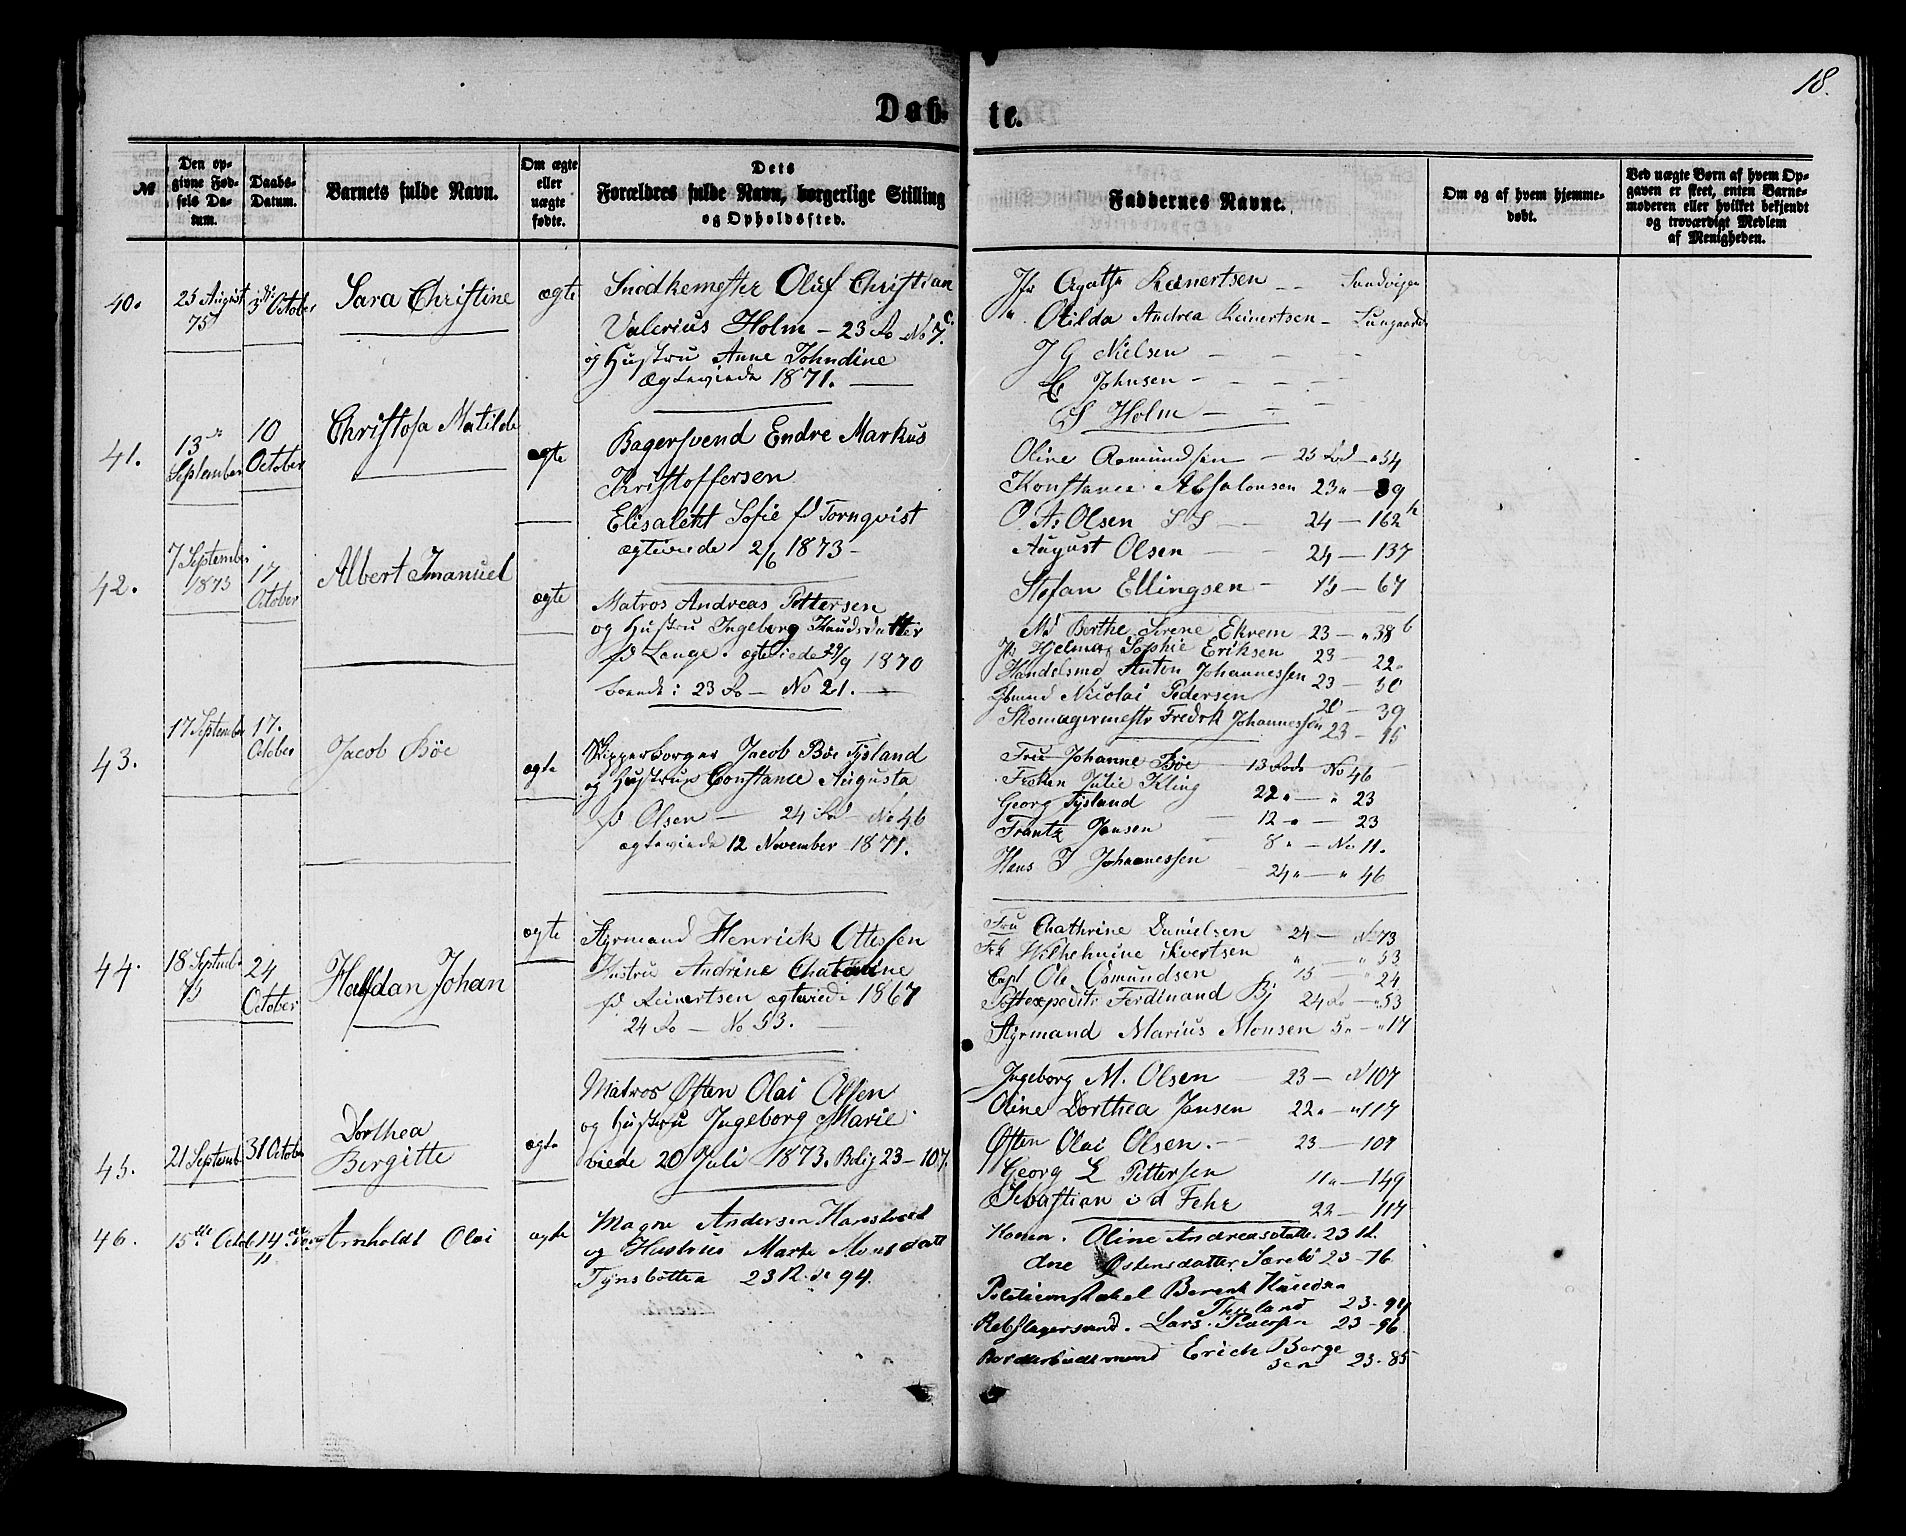 18.
Døb- te.
№
Den op-
givne Fød-
sels Da-
tum.
Daabs-
Datum.
Barnets fulde Navn.
Om ægte
eller
uægte
fødte.
Dets
Forældres fulde Navn, borgerlige Stilling
og Opholdssted.
Faddernes Navne.
Om og af hvem hjemme-
døbt.
Ved uægte Børn af hvem Op-
gaven er skeet, enten Barne-
moderen eller hvilket bekjendt
og troværdigt Medlem
af Menigheden.
40.
25 August
75
3die October
Sara Christine
ægte
Snedkermester Oluf Christian
Valerius Holm – 23 Ro No 7.c
og Hustru Anne Johndine
Ægteviede 1871.
Jfr Agathe Reinertsen – – Sandvigen
" Otilda Andrea Reinertsen – Lungaarden
J G Nielsen – – –
C Johnsen – – – –
S Holm – – –
41.
13de
September
10
October
Christofa Matilde
ægte
Bagersvend Endre Markus
Kristoffersen
Elisabeth Sofie fd Tornqvist
ægteviede 2/6 1873 –
Oline Romundsen – 23 Rod – 54
Konstance Absalonsen 23 " – 39
O. As Olsen – 24 – 162 b
August Olsen – – 24 – 137
Stefan Ellingsen – 15 – 67
42.
7 September
1875
17
October
Albert Imanuel
ægte
Matros Andreas Pettersen
og Hustru Ingeborg Knudsdatter
fd Lange. ægteviede 29/9 1870
boende i 23 Ro – No 21. –
Md Berthe Serene Ekrem – 23 – " 38 b
Jfr Helma Sophie Eriksen 23 – 22 "
Handelsmd Anton Johannessen 23 – 50
Nicolai Pedersen 20 – 39
Skomagermestr Fredrk Johannessen 23 – 15
43.
17 September
17.
October
Jacob Bøe
ægte
Skipperborger Jacob Bøe Tysland
og Hustru Constance Augusta
fd Olsen – 24 Rd No 46
ægteviede 12 November 1871.
Fru Johanne Bøe – 13 Rode No 46
Frøken Julie Kling 22 " – " 23
Georg Tysland 12 " – 23
Frantz Jansen – 8 " – No 11.
Hans J Johannessen – 24 " – " 46
44.
18 Septembr
75
24
October
Halfdan Johan
ægte
Styrmand Henrick Ottesen
Hustru Andrine Chatrine
fd Reinertsen ægteviede 1867
24 Ro – No 53. –
Fru Chathrine Danielsen 24 – No 73
Frk Wilhelmine Sivertsen " – " 53
Capt Ole Osmundsen 15 – " 24
Ferdinand Bj 24 Ro – " 53
Styrmand Marius Monsen 5 " – " 17
45.
21 Septemb
31 October
Dorthea
Bergitte
ægte
Matros Østen Olai Olsen
og Hustru Ingeborg Marie
viede 20 Juli 1873. Bolig 23 – 107.
Ingeborg M. Olsen – 23 – No 107
Oline Dorthea Jansen 22 " – " 117
Østen Olai Olsen. – 23 – 107
Georg L Pettersen 11 " – 149
Sebastian v d Fehr 22 – 117
46.
15de Octob
14de
Arnholdt Olai
ægte
Magne Andersen
og Hustru Marte Monsdatt
23 R. de 94.
Konen. Oline Andreasdatte. 23 11.
dne Østensdatter Sørebø 23 – 76
Berent Knudsen
23 – 94
Rebslagersvend. Lars 23 – 96
Erick Berge
sen 23 – 85